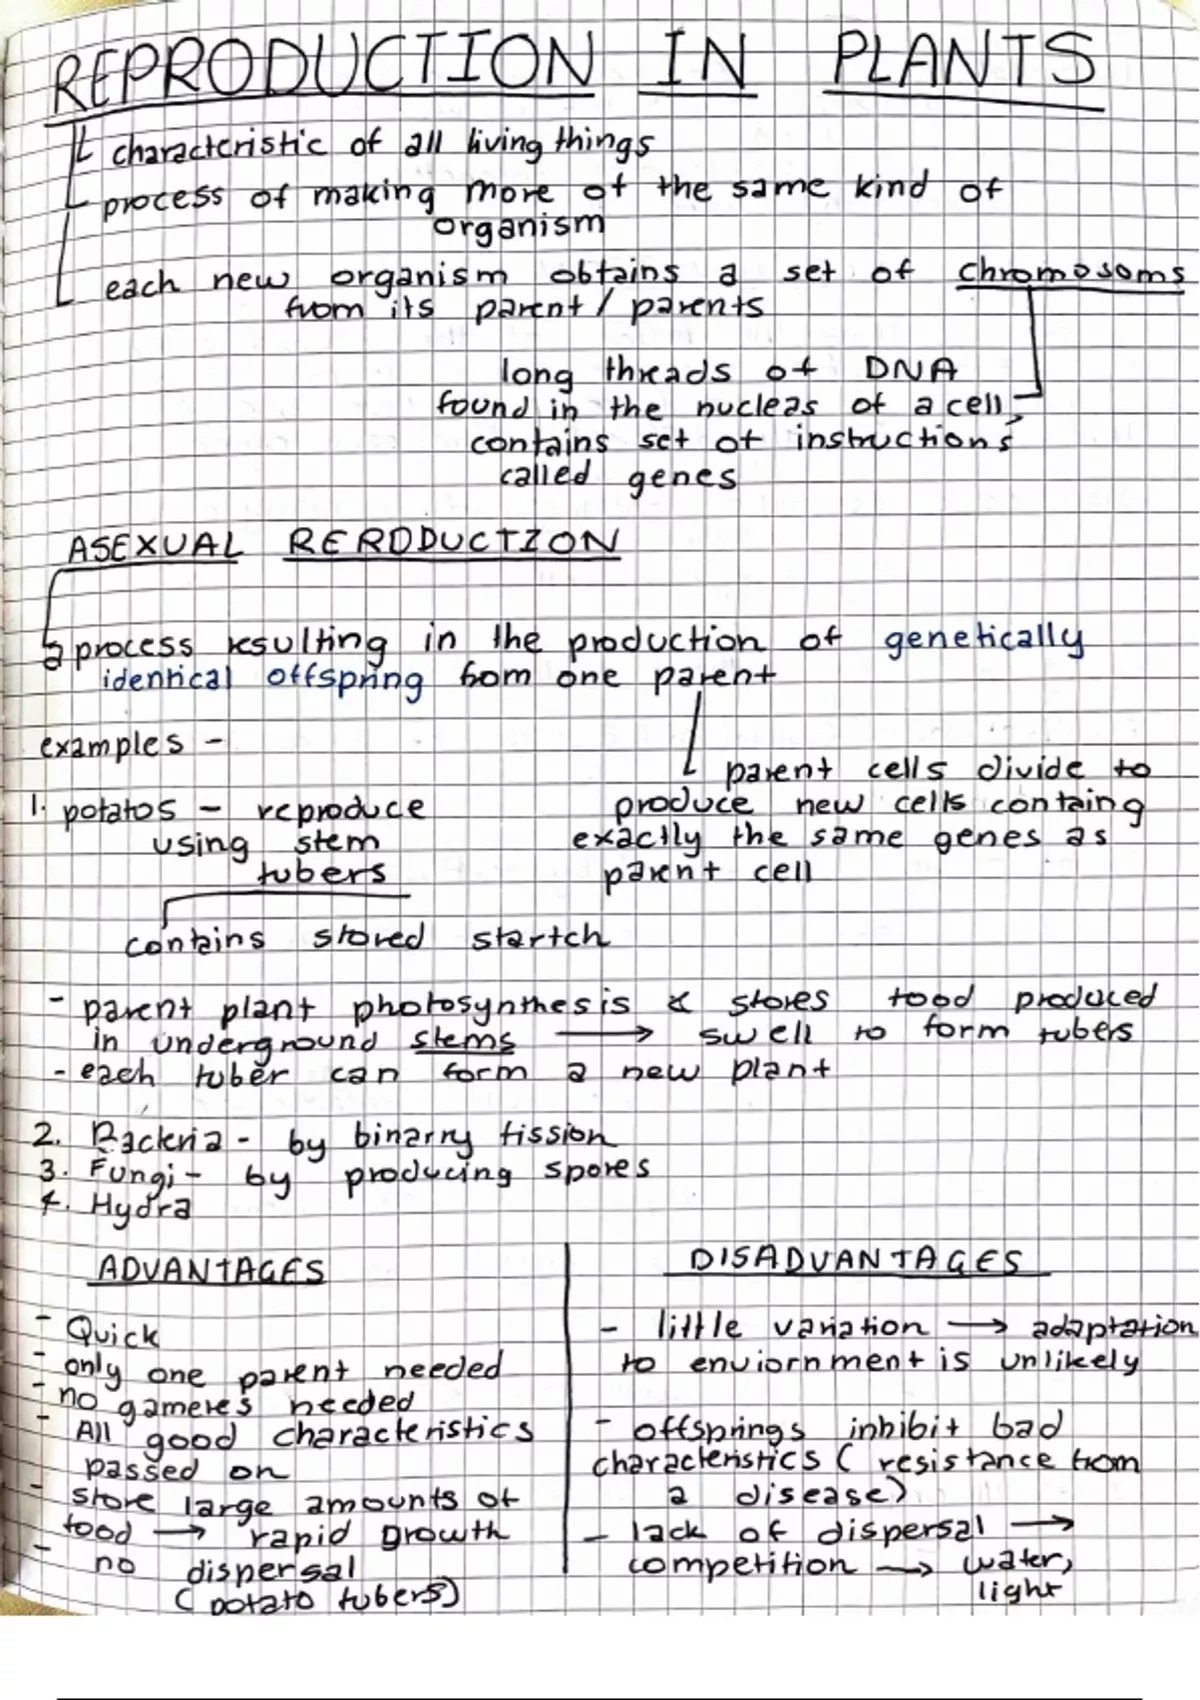 REPRODUCTION IN PLANTS
characteristic of all living things
process of making more of the same kind of
organism
each new organism obtains a set of chromosoms
from its parent / parents
long threads of DNA
found in the nucleas of a cell,
contains set of instructions
called genes
ASEXUAL RERODUCTION
a process resulting in the production of genetically
identical offspring from one parent
examples -
parent cells divide to
produce new cells containg
exactly the same genes as
parent cell
1. potatos - reproduce
using stem
tubers
contains stored startch
- parent plant photosynthesis & stores food produced
in underground stems → swell to form tubers
- each tuber can form a new plant
2. Bacteria - by binarry fission
3. Fungi - by producing spores
4. Hydra
ADVANTAGES
- Quick
- only one parent needed
- no gametes needed
- All good characteristics
passed on
- store large amounts of
food → rapid growth
- no dispersal
(potato tubers)
DISADVANTAGES
- little variation → adaptation
to enviornment is unlikely
- offsprings inhibit bad
characteristics ( resistance from
a disease)
- lack of dispersal →
competition → water,
light